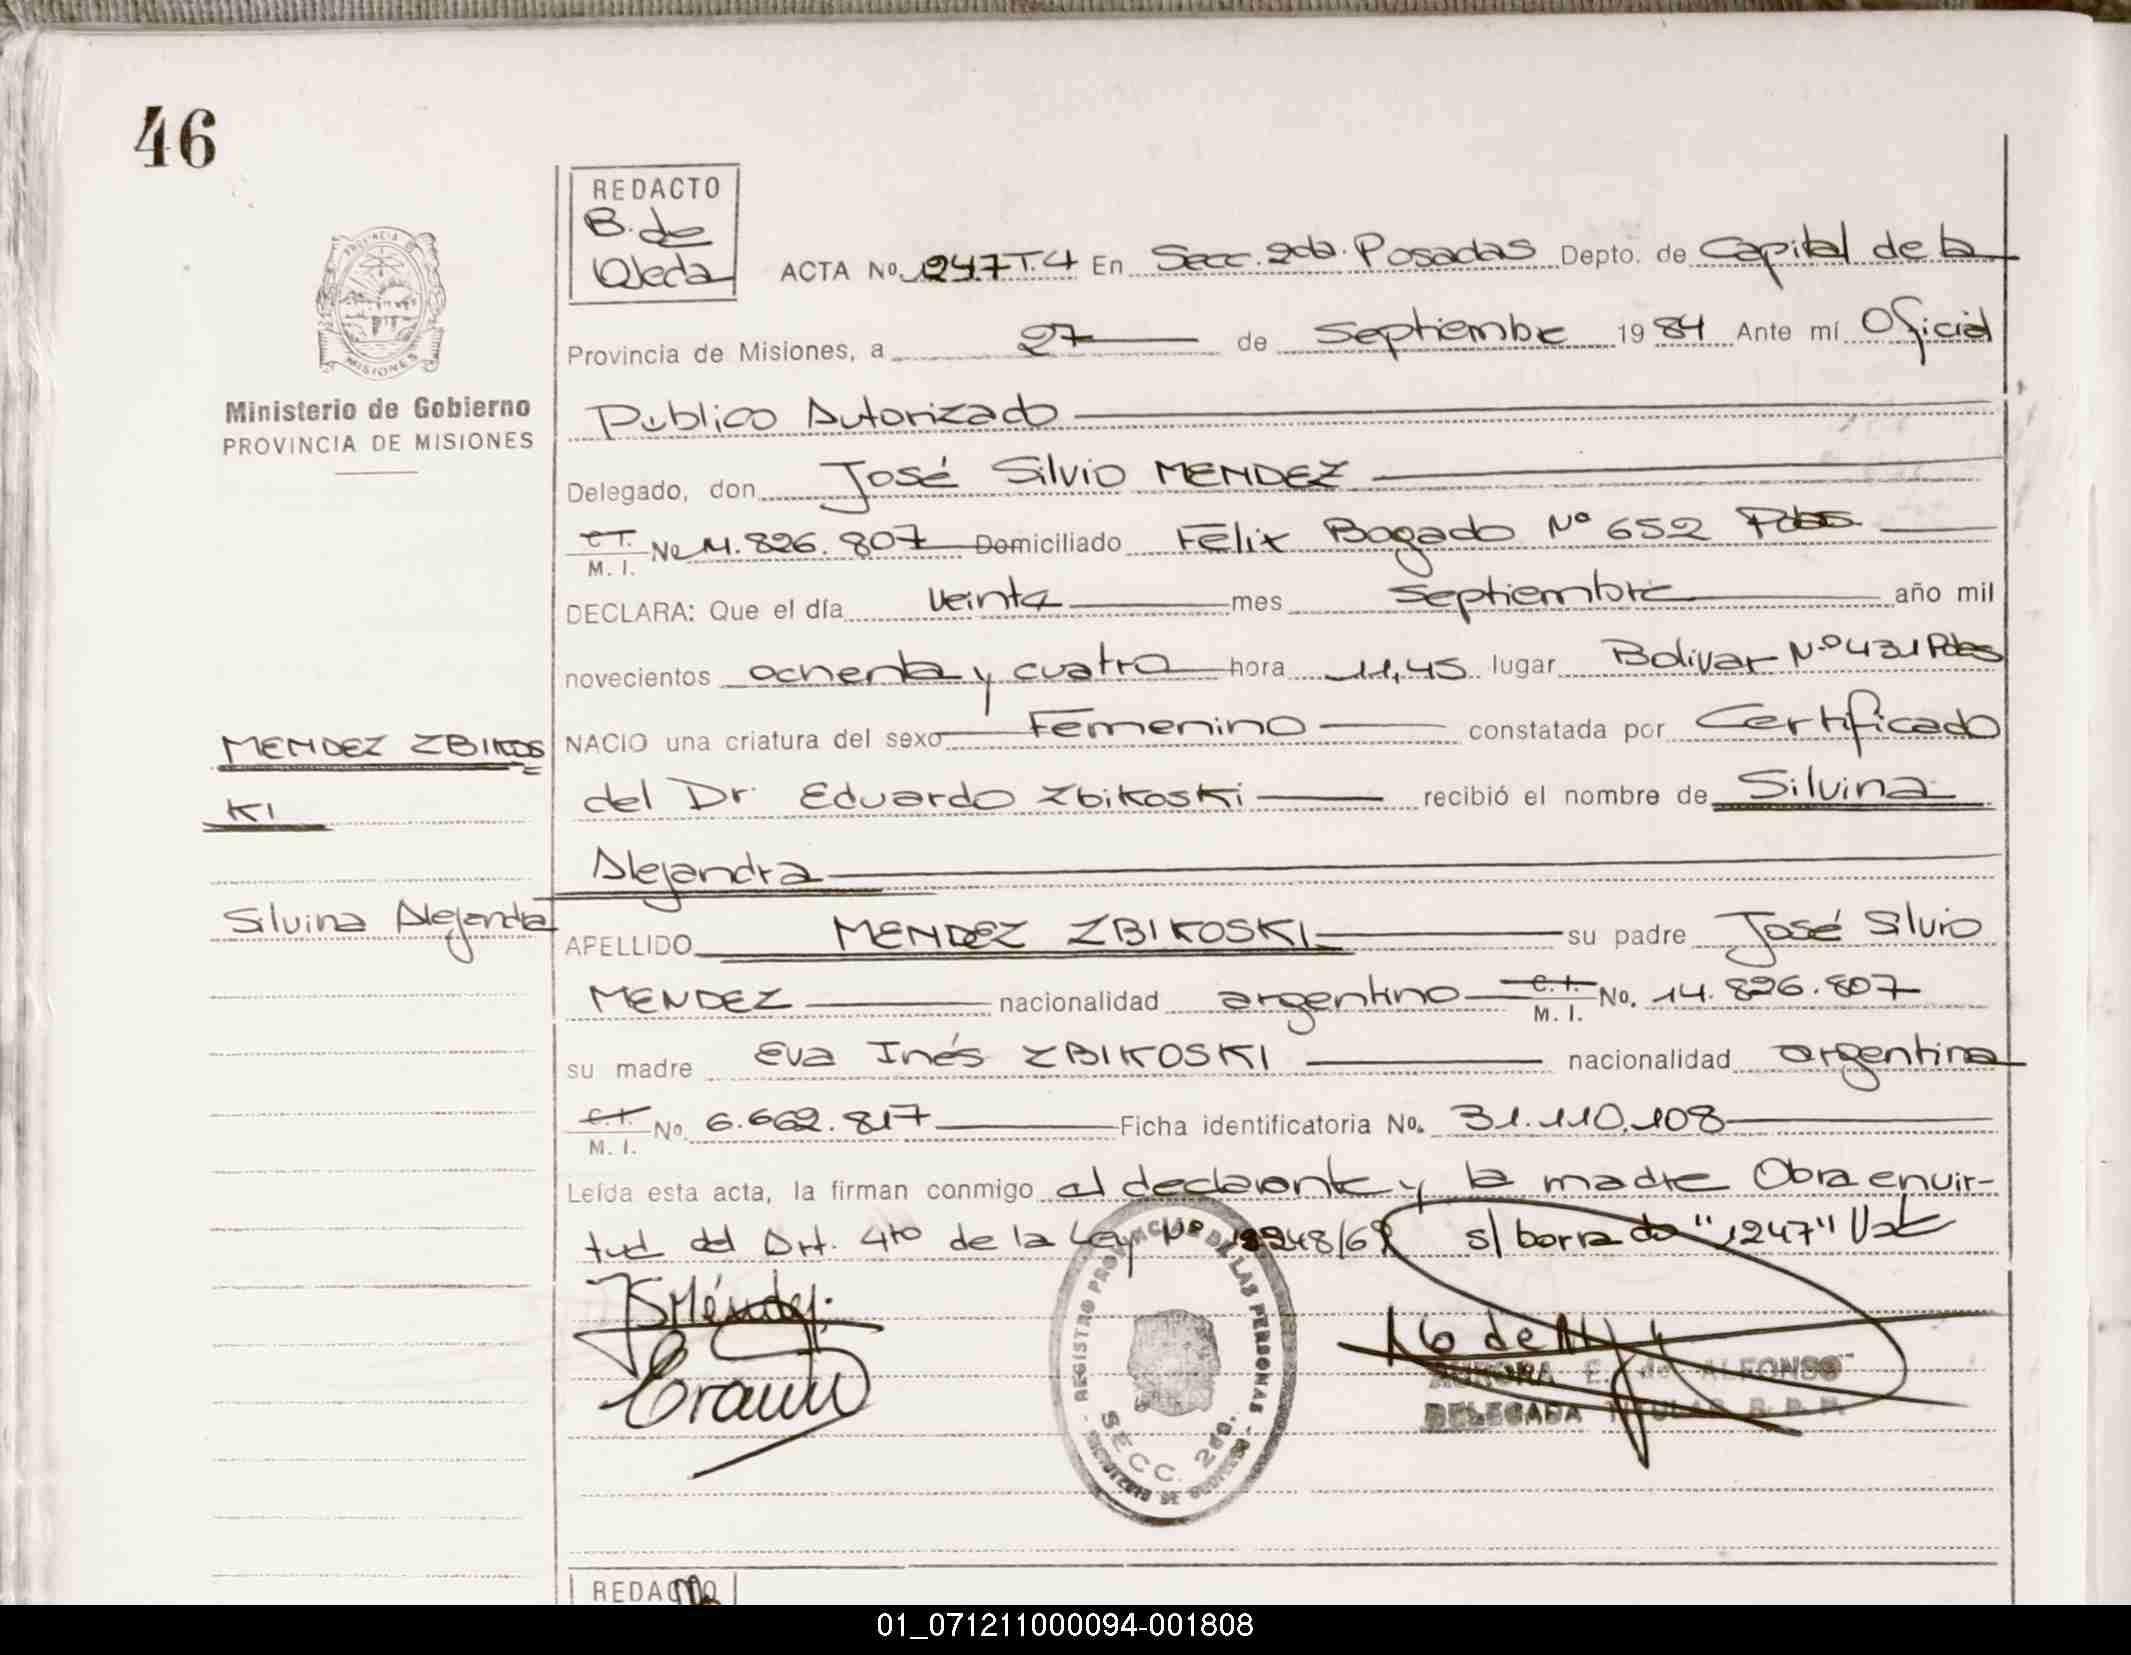 46
REDACTO
B. de
Ojeda
ACTA No. 1247 T.4 En Secc. 2da. Posadas Depto. de Capital de la
Provincia de Misiones, a 27 de Septiembre 1984 Ante mí Oficial
PROVINCIA DE MISIONES
Ministerio de Gobierno
PROVINCIA DE MISIONES
Publico Autorizado
Delegado, don José Silvio MENDEZ
C.I. M. I. No 14.826.807 Domiciliado Felix Bogado Nº 652 Pdas
DECLARA: Que el día veinte mes Septiembre año mil
novecientos ochenta y cuatro hora 11,45 lugar Bolivar Nº 431 Pdas
MENDEZ ZBIKOS
KI
Silvina Alejandra
NACIO una criatura del sexo Femenino constatada por Certificado
del Dr. Eduardo Zbikoski recibió el nombre de Silvina
Alejandra
APELLIDO MENDEZ ZBIKOSKI su padre José Silvio
MENDEZ nacionalidad argentino C.I. M. I. No. 14.826.807
su madre Eva Inés ZBIKOSKI nacionalidad argentina
C.I. M. I. No. 6.662.817 Ficha identificatoria No. 31.110.108
Leída esta acta, la firman conmigo el declarante y la madre Obra en vir-
tud del Art. 4to de la Ley Nº 18248/69 s/borrado "1247" Vale
JSMéndez
REGISTRO PROVINCIAL DE LAS PERSONAS
SECC. 2da.
MINISTERIO DE GOBIERNO
AURORA E. de ALFONSO
DELEGADA TITULAR R. P. P.
REDACTO
01_071211000094-001808